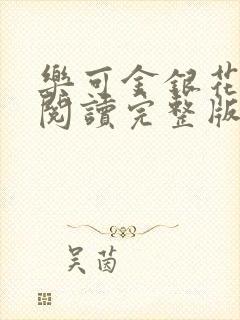 樂可金銀花
閱讀完整版
吴茵